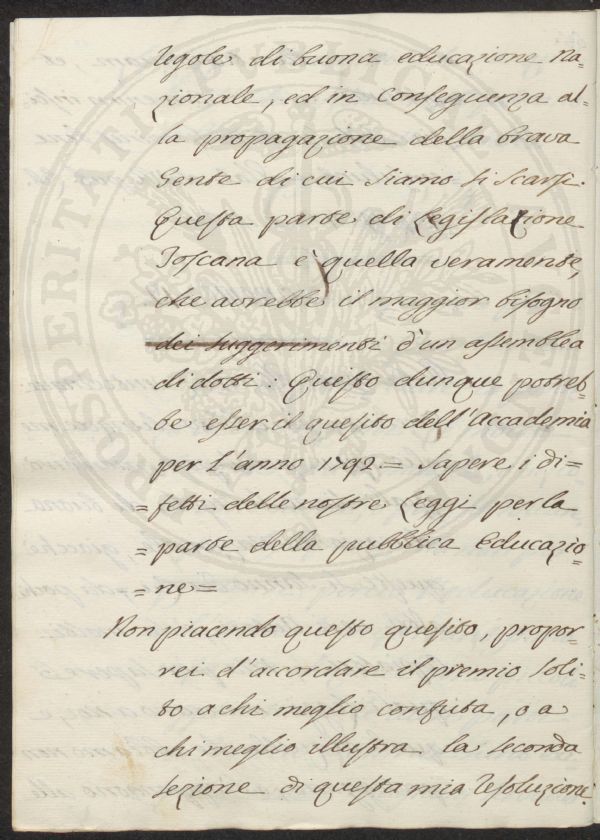 regole di buona educazione Na=
zionale, ed in conseguenza al-
la propagazione della brava
Gente di cui siamo sì scarsi.
Questa parte di Legislazione
Toscana e quella veramente,
che avrebbe il maggior bisogno
dei suggerimenti d'un assemblea
di dotti: Questo dunque potreb=
be esser il quesito dell'Accademia
per l'anno 1792 = Sapere i di=
= fetti delle nostre Leggi per la
= parte della pubblica Educazio=
= ne =
Non piacendo questo quesito, propor=
rei d'accordare il premio soli=
to a chi meglio confuta, o a
chi meglio illustra la seconda
sezione di questa mia resoluzione
PROSPERITATI PUBLICAE